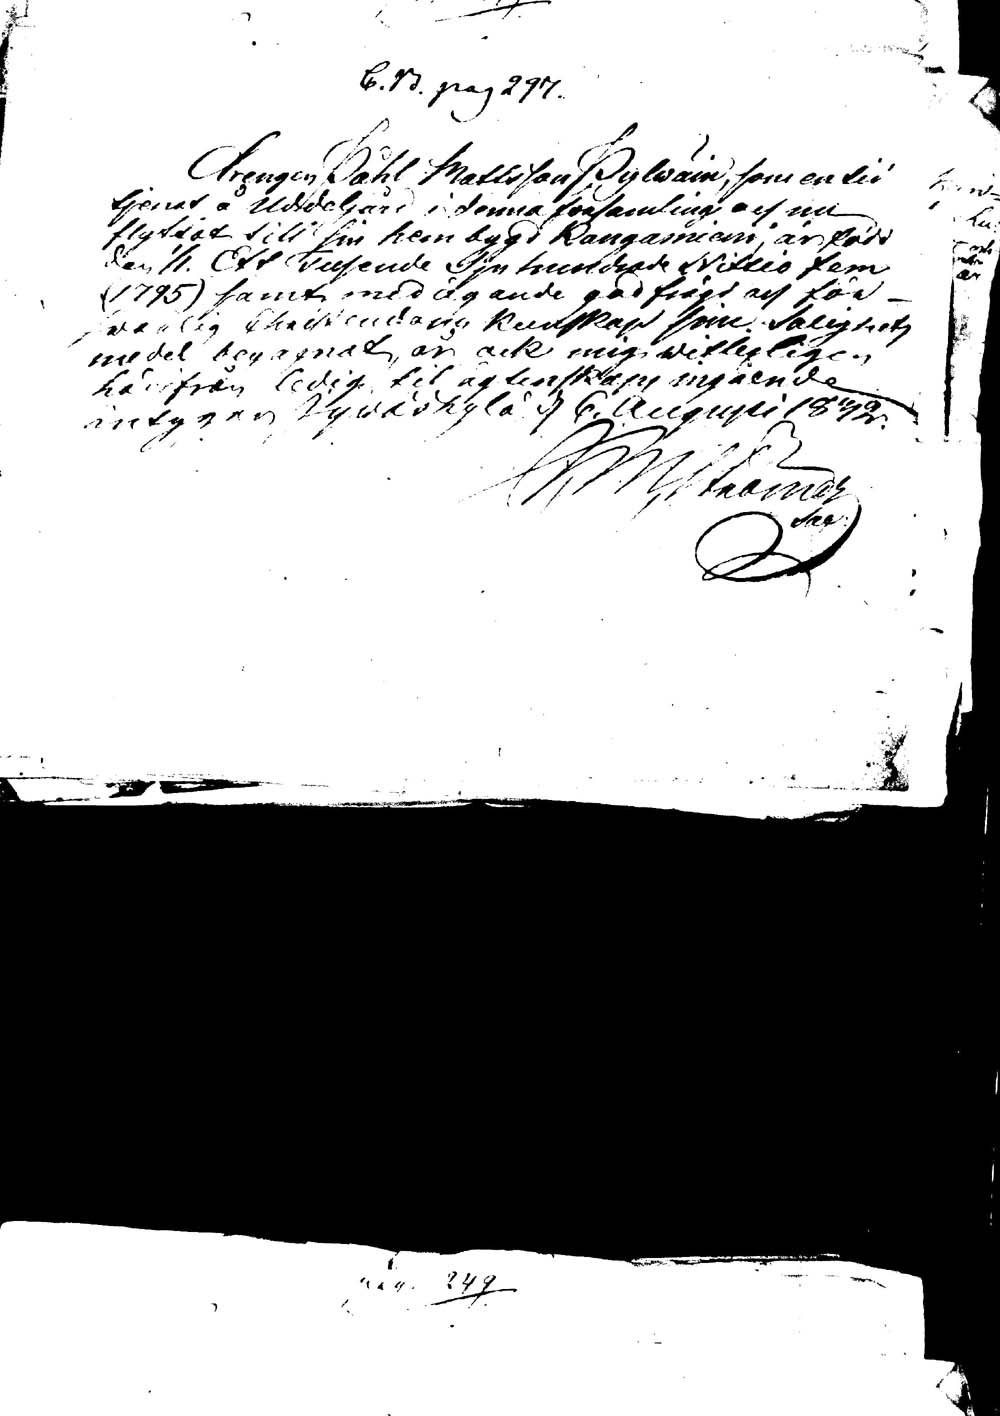 C. B. pag 297.
Drengen Påhl Mattsson Sylwäin, som en tid
tjenat å Uddelgård i denna församling och nu
flyttat till sin hembygd Kangasniemi, är född
den 11. Ett Tusende Sju hundrade Nittio fem
(1795) samt med ägande god frägd och för–
svarlig Christendoms Kunskap sine Salighets
medel begagnat, är ock mig witterligen
härifrån ledig til ägtenskaps ingående
intygar Jywäskylä d 6. Augusti 1842.
Sac.
pag. 249